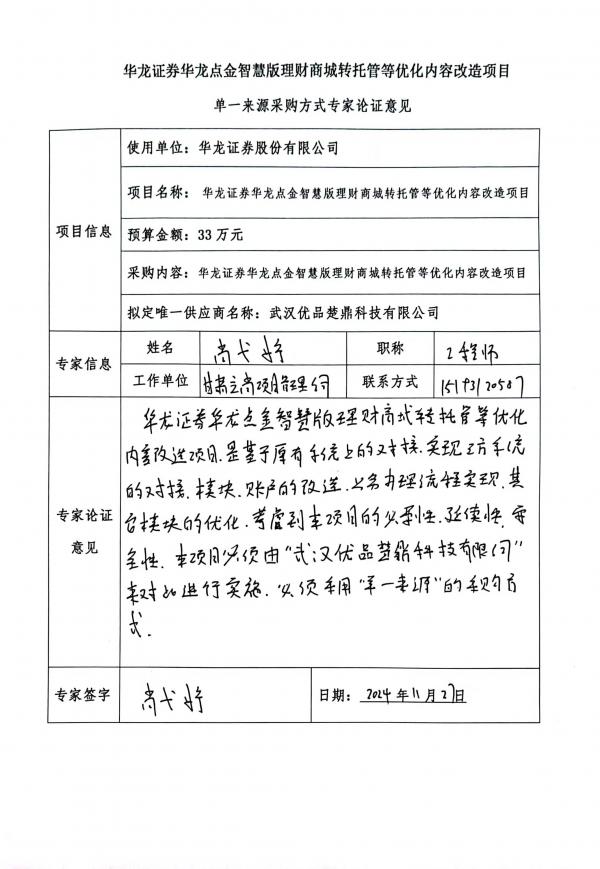 华龙证券华龙点金智慧版理财商城转托管等优化内容改造项目
单一来源采购方式专家论证意见
项目信息
使用单位：华龙证券股份有限公司
项目名称：华龙证券华龙点金智慧版理财商城转托管等优化内容改造项目
预算金额：33万元
采购内容：华龙证券华龙点金智慧版理财商城转托管等优化内容改造项目
拟定唯一供应商名称：武汉优品楚鼎科技有限公司
专家信息
姓名
尚弋婷
职称
工程师
工作单位
甘肃立尚项目管理公司
联系方式
15193120587
专家论证
意见
华龙证券华龙点金智慧版理财商城转托管等优化
内容改造项目，是基于原有系统上的对接，实现三方系统
的对接、模块、账户的改造、业务办理流程实现、其
它模块的优化。考虑到本项目的必要性、延续性、安
全性，本项目必须由“武汉优品楚鼎科技有限公司”
来对此进行实施。必须采用“单一来源”的采购方
式。
专家签字
尚弋婷
日期：2024年11月27日